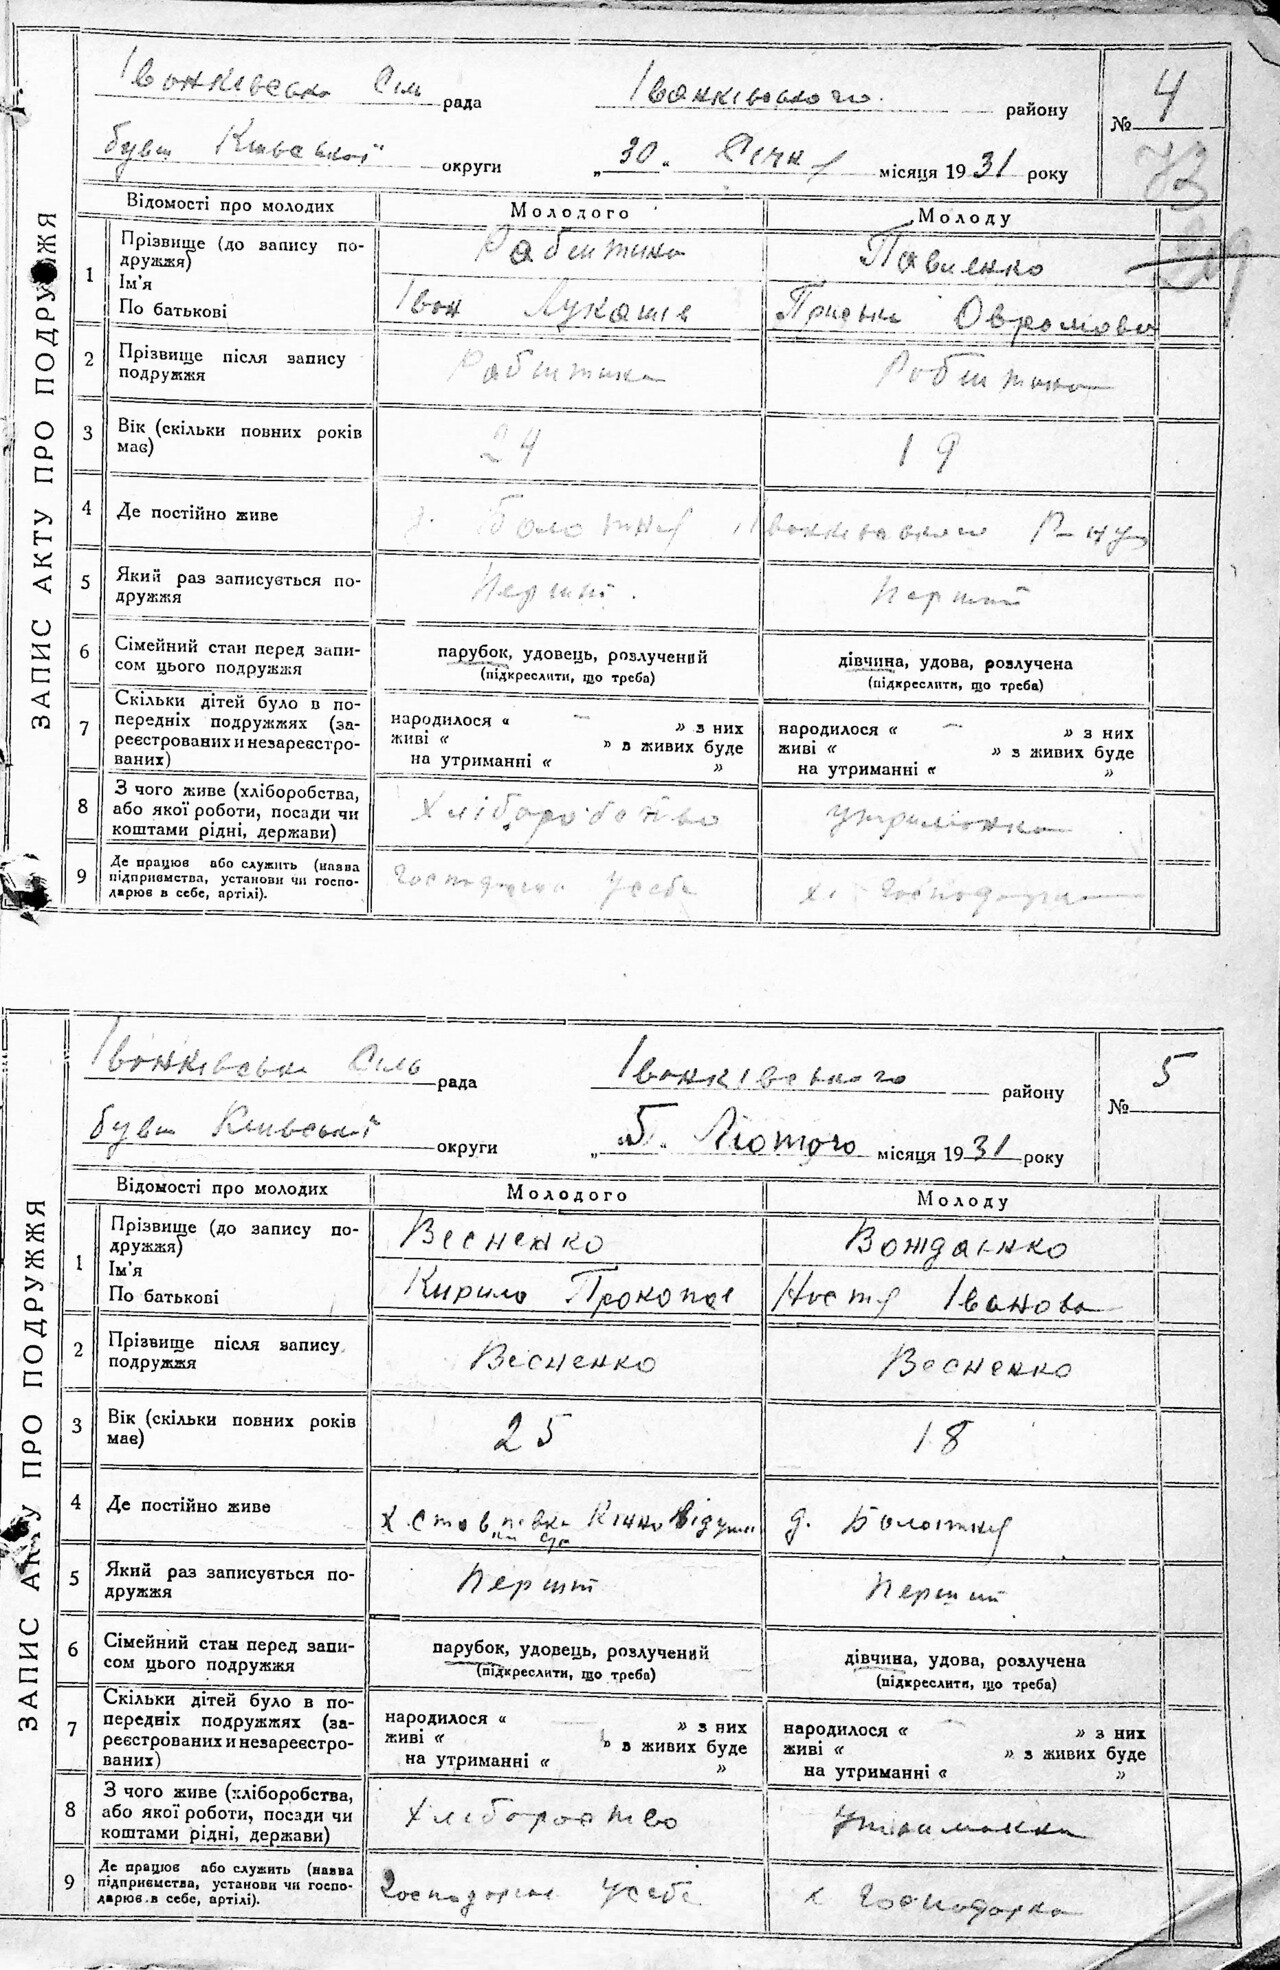 ЗАПИС АКТУ ПРО ПОДРУЖЖЯ
Іванківська Сіль рада Іванківського району № 4
бувш Київської округи „30„ Січня місяця 1931 року
73
29
Відомості про молодих Молодого Молоду
1 Прізвище (до запису по- Рабштина Павленко
дружжя)
Ім'я Іван Лукашів Приська Оврамова
По батькові
2 Прізвище після запису Рабштина Робштина
подружжя
3 Вік (скільки повних років 24 19
має)
4 Де постійно живе д. Болотня Іванківського Р-ну
5 Який раз записується по- Перший Перший
дружжя
6 Сімейний стан перед запи- парубок, удовець, розлучений дівчина, удова, розлучена
сом цього подружжя (підкреслити, що треба) (підкреслити, що треба)
7 Скільки дітей було в по- народилося « — » з них народилося « — » з них
передніх подружжях (за- живі « » в живих буде живі « » з живих буде
реєстрованих и незареєстро- на утриманні « » на утриманні « »
ваних)
8 З чого живе (хліборобства, Хліборобство утриманка
або якої роботи, посади чи
коштами рідні, держави)
9 Де працює або служить (назва Господарює усебе х. Господарка
підприємства, установи чи госпо-
дарює в себе, артілі).
ЗАПИС АКТУ ПРО ПОДРУЖЖЯ
Іванківська Сіль рада Іванківського району № 5
бувш Київської округи „5„ Лютого місяця 1931 року
Відомості про молодих Молодого Молоду
1 Прізвище (до запису по- Весненко Вождаєнко
дружжя)
Ім'я Кирило Прокопов Настя Іванова
По батькові
2 Прізвище після запису Весненко Весненко
подружжя
3 Вік (скільки повних років 25 18
має)
4 Де постійно живе х. д. Болотня
5 Який раз записується по- Перший Перший
дружжя
6 Сімейний стан перед запи- парубок, удовець, розлучений дівчина, удова, розлучена
сом цього подружжя (підкреслити, що треба) (підкреслити, що треба)
7 Скільки дітей було в по- народилося « — » з них народилося « — » з них
передніх подружжях (за- живі « » в живих буде живі « » з живих буде
реєстрованих и незареєстро- на утриманні « » на утриманні « »
ваних)
8 З чого живе (хліборобства, Хлібороство Утриманка
або якої роботи, посади чи
коштами рідні, держави)
9 Де працює або служить (назва Господарює усебе х Господарка
підприємства, установи чи госпо-
дарює в себе, артілі).